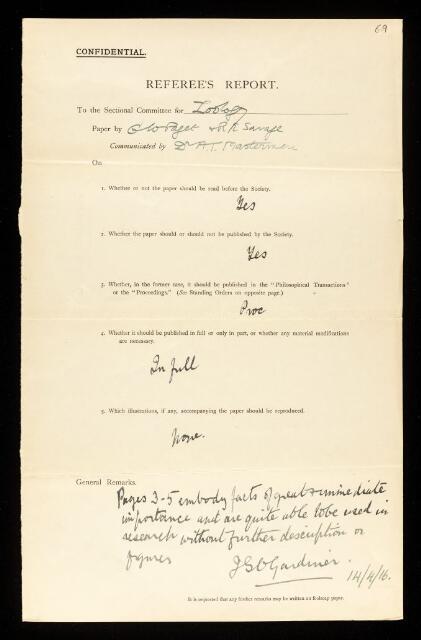 69
CONFIDENTIAL.
REFEREE'S REPORT.
To the Sectional Committee for Zoology
Paper by G W Paget & R E Savage
Communicated by Dr A. T. Masterman
On
1. Whether or not the paper should be read before the Society.
Yes
2. Whether the paper should or should not be published by the Society.
Yes
3. Whether, in the former case, it should be published in the "Philosophical Transactions"
or the "Proceedings." (See Standing Orders on opposite page.)
Proc
4. Whether it should be published in full or only in part, or whether any material modifications
are necessary.
In full
5. Which illustrations, if any, accompanying the paper should be reproduced.
None.
General Remarks.
Pages 3-5 embody facts of great & immediate
importance and are quite able to be used in
research without further description or
figures
J S Gardiner.
14/4/16.
It is requested that any further remarks may be written on foolscap paper.